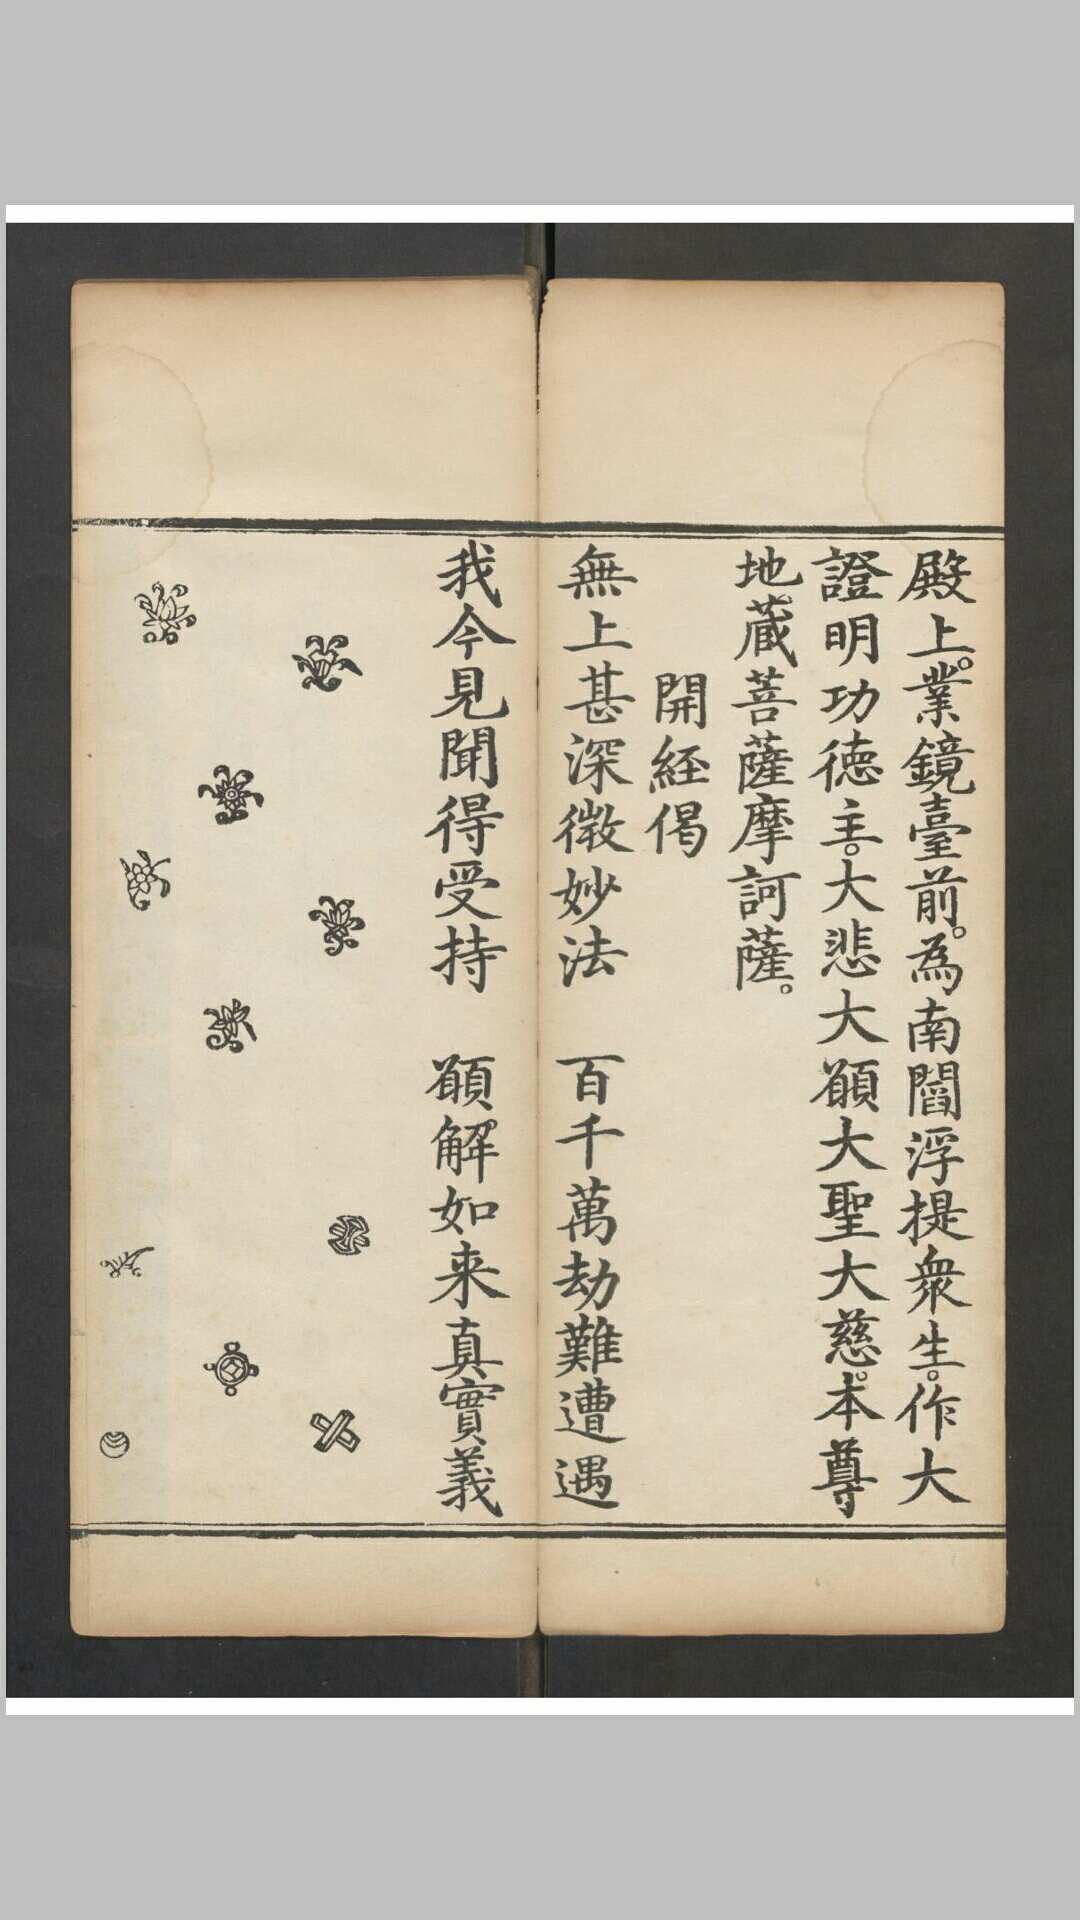 殿上。業鏡臺前。為南閻浮提衆生。作大
證明功德主。大悲大願大聖大慈。本尊
地藏菩薩摩訶薩。
開經偈
無上甚深微妙法　百千萬劫難遭遇
我今見聞得受持　願解如来真實義